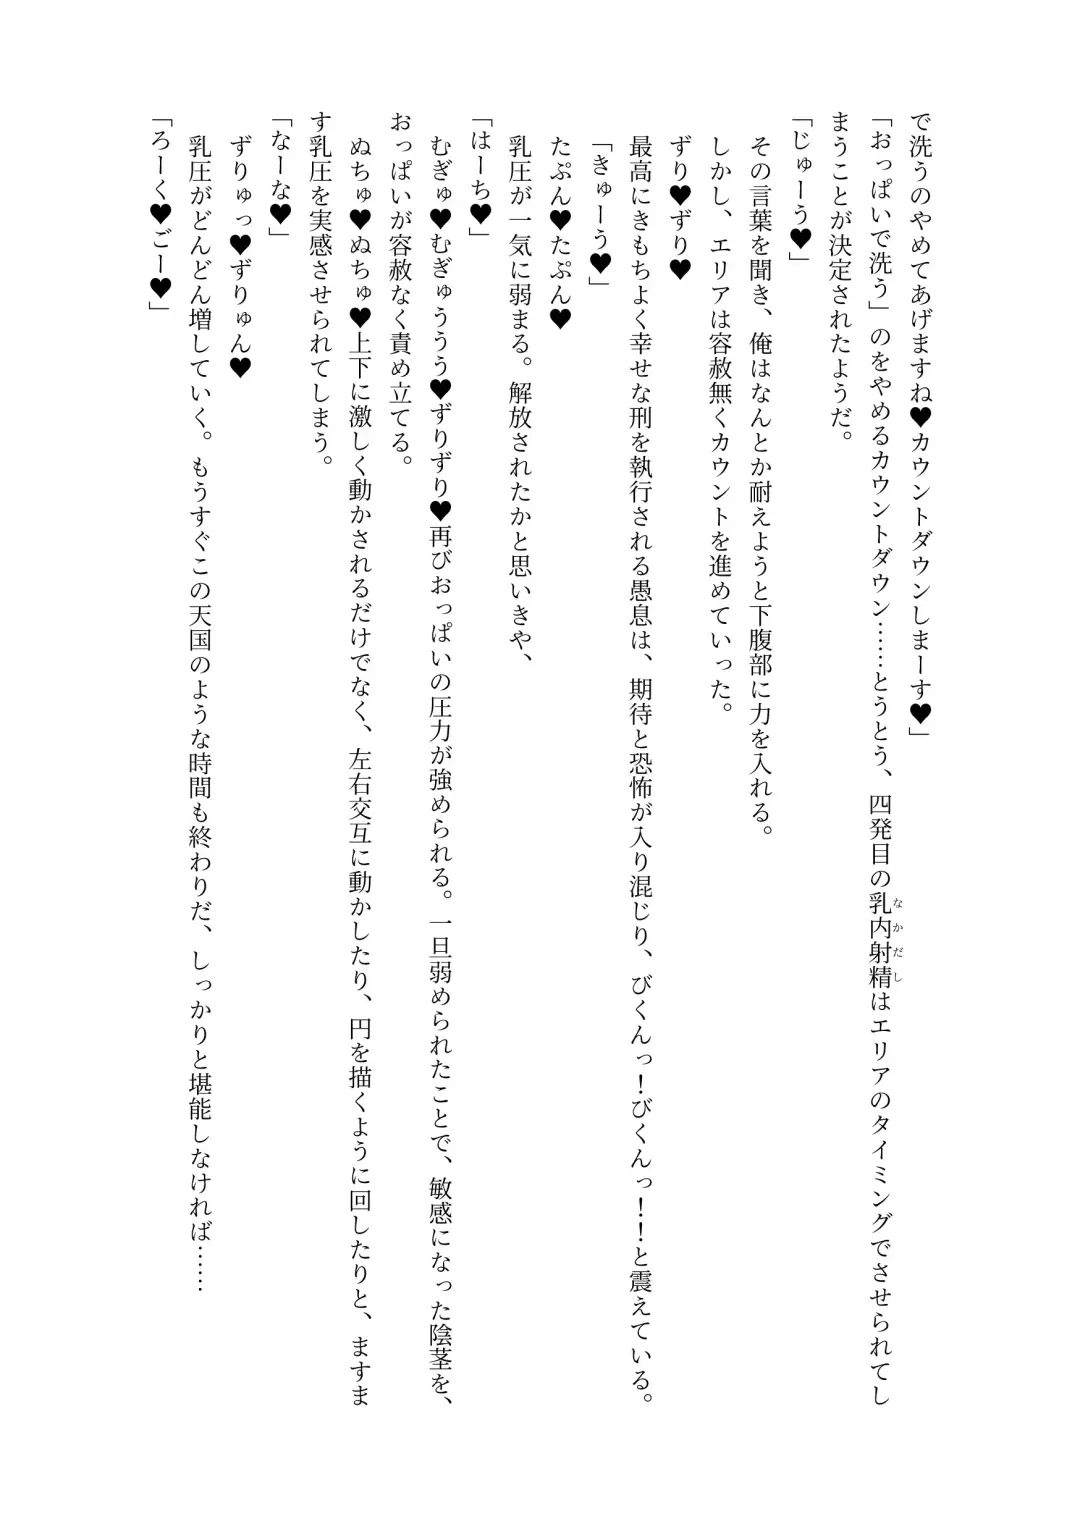 で洗うのやめてあげますね♥カウントダウンしまーす♥」
「おっぱいで洗う」のをやめるカウントダウン……とうとう、四発目の乳内射精なかだしはエリアのタイミングでさせられてし
まうことが決定されたようだ。
「じゅーう♥」
その言葉を聞き、俺はなんとか耐えようと下腹部に力を入れる。
しかし、エリアは容赦無くカウントを進めていった。
ずり♥ずり♥
最高にきもちよく幸せな刑を執行される愚息は、期待と恐怖が入り混じり、びくんっ！びくんっ！！と震えている。
「きゅーう♥」
たぷん♥たぷん♥
乳圧が一気に弱まる。解放されたかと思いきや、
「はーち♥」
むぎゅ♥むぎゅううう♥ずりずり♥再びおっぱいの圧力が強められる。一旦弱められたことで、敏感になった陰茎を、
おっぱいが容赦なく責め立てる。
ぬちゅ♥ぬちゅ♥上下に激しく動かされるだけでなく、左右交互に動かしたり、円を描くように回したりと、ますま
す乳圧を実感させられてしまう。
「なーな♥」
ずりゅっ♥ずりゅん♥
乳圧がどんどん増していく。もうすぐこの天国のような時間も終わりだ、しっかりと堪能しなければ……
「ろーく♥ごー♥」